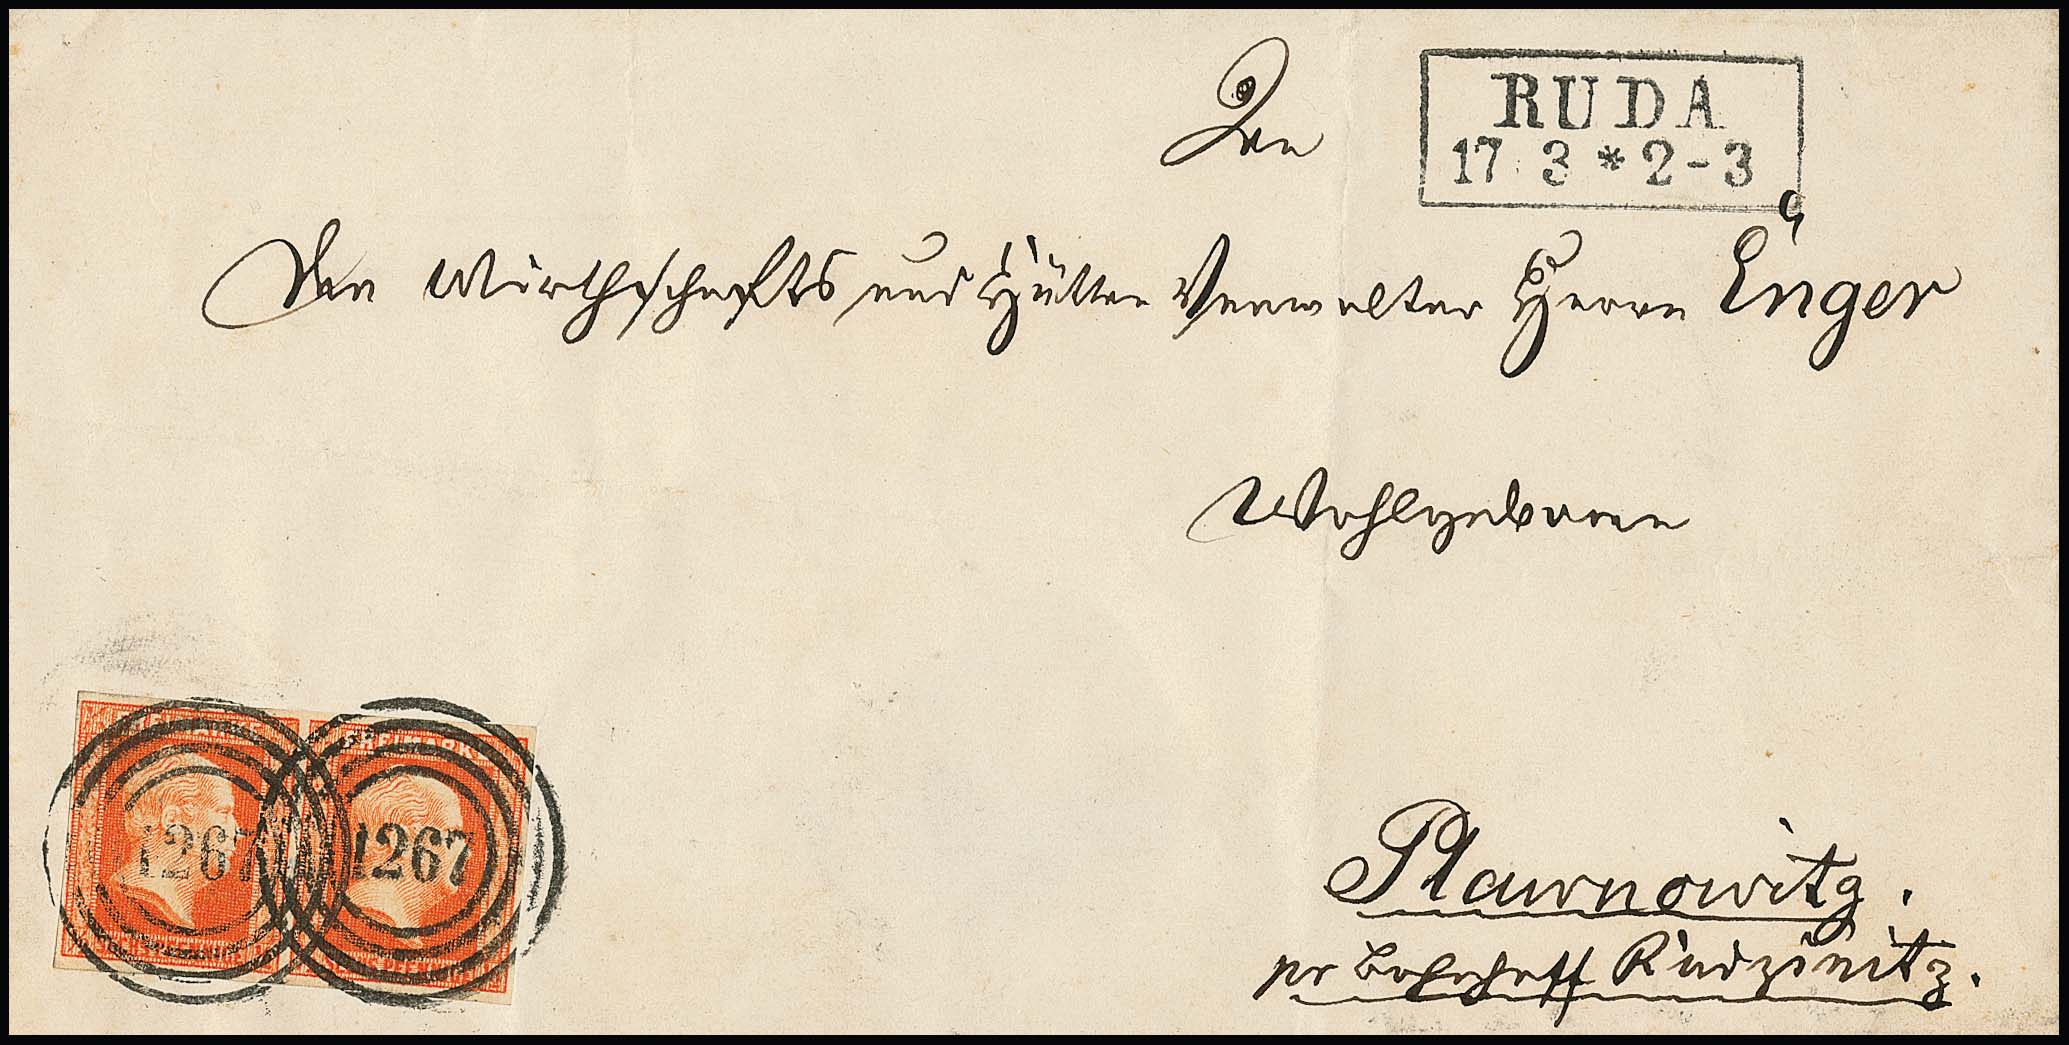 RUDA
17 3 * 2-3
An
Den Wirthschafts und Hütten Verwalter Herrn Enger
Wohlgeboren
FREIMARKE
FREIMARKE
1267
1267
Plawnowitz.
pr Bahnhoff Rudzinitz.